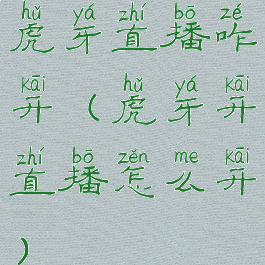 hǔ yá zhí bō zé
虎牙直播咋
kāi hǔ yá kāi
开(虎牙开
zhí bō zěn me kāi
直播怎么开
)